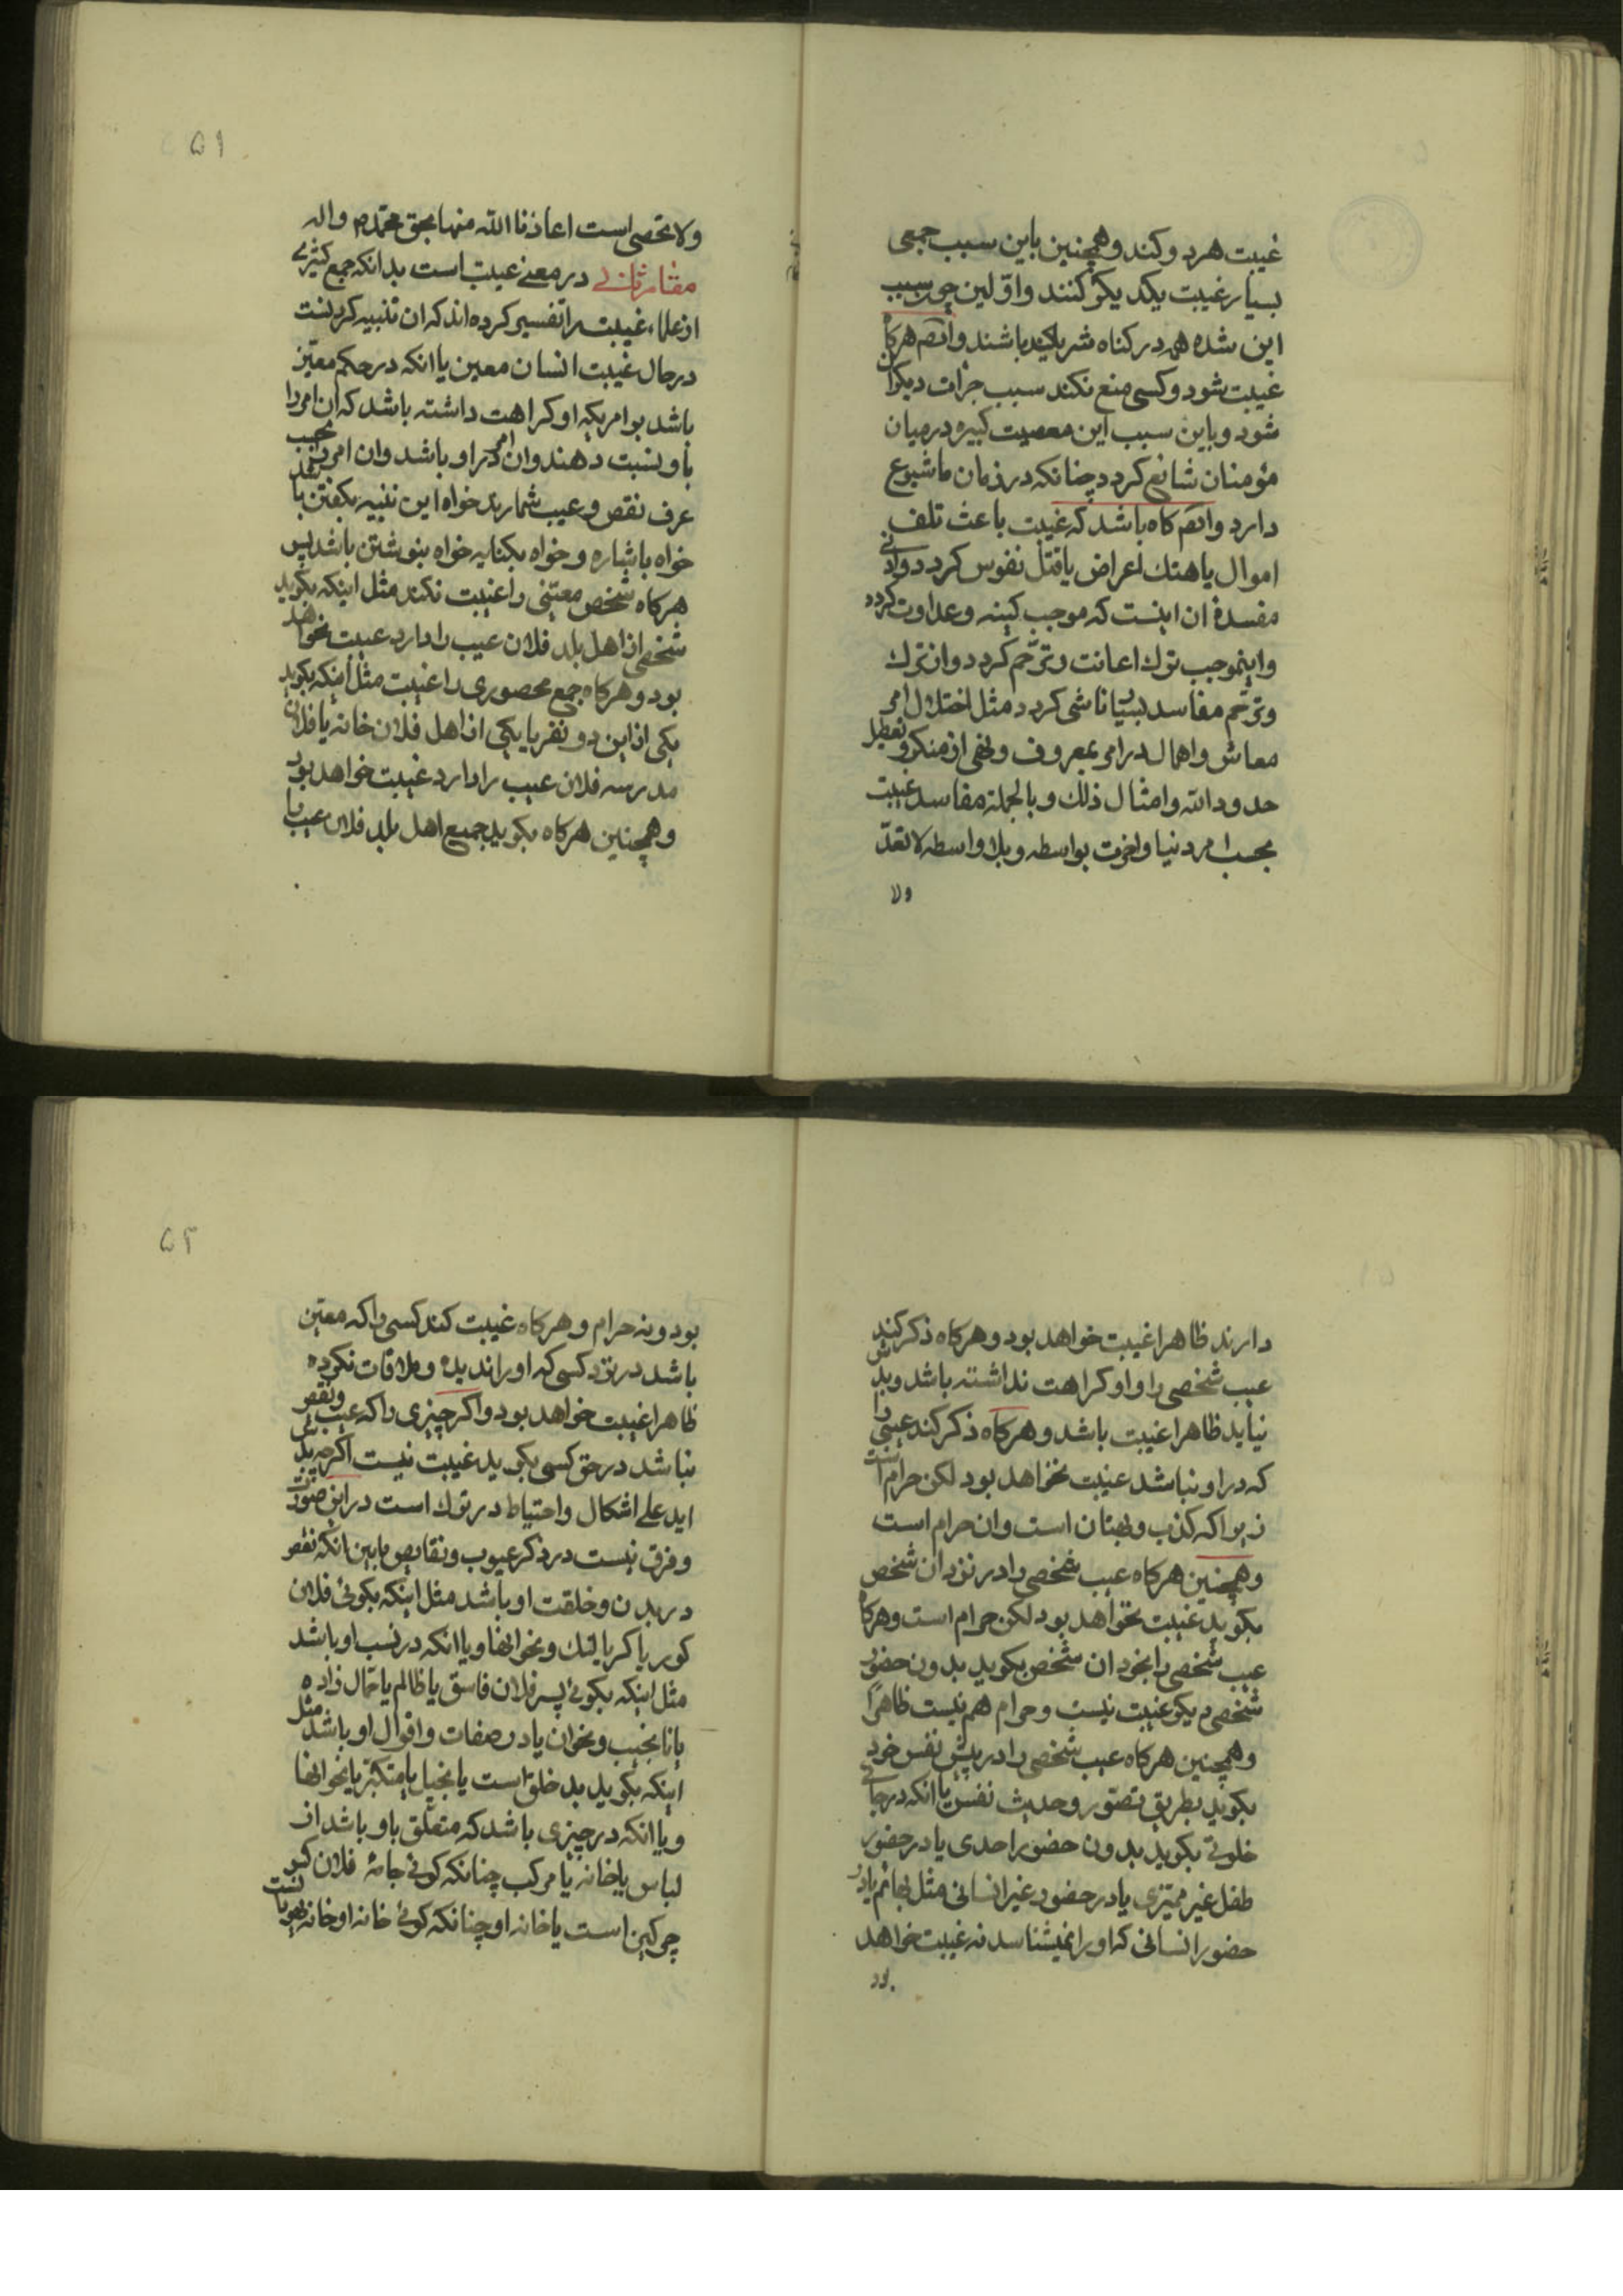 غیبت هر دو کند و همچنین باین سبب جمعی
بسیار غیبت یکدیگر کنند و اوّلین چون سبب
این شده همه در کناه شریک باشند و ایضم هرکاه
غیبت شود و کسی منع نکند سبب جرات دیکران
شود و باین سبب این معصیت کبیره در میان
مؤمنان شایع کردد چنانکه در زمان ما شیوع
دارد و ایضم کاه باشد که غیبت باعث تلف
اموال یا هتک اعراض یا قتل نفوس کردد و ادنی
مفسدهٔ ان اینست که موجب کینه و عداوت کردد
و اینموجب ترک اعانت و ترحّم کردد و از ترک
و ترحّم مفاسد بسیار ناشی کردد مثل اختلال امر
معاش و اهمال در امر بمعروف و نهی از منکر و تعطیل
حدود الله و امثال ذلک و بالجملة مفاسد غیبت
بحسب امر دنیا و اخرت بواسطه و بلا واسطه لا تعدّ
ولا
۵۱
ولا تحصی است اعاذنا الله منها بحق محمّد ص و اله
مقام ثانی در معنی غیبت است بدانکه جمع کثیری
از علماء غیبت را تفسیر کرده اند که ان تنبیه کردنست
در حال غیبت انسان معین یا انکه در حکم معیّن
باشد بر امریکه او کراهت داشته باشد که ان امر را
باو نسبت دهند و ان امر در او باشد و ان امر را بحسب
عرف نقص و عیب شمارند خواه این تنبیه بکفتن باشد
خواه باشاره و خواه بکنایه خواه بنوشتن باشد پس
هرکاه شخص معیّنی را غیبت نکند مثل اینکه بکوید
شخصی از اهل بلد فلان عیب را دارد غیبت نخواهد
بود و هرکاه جمع محصوری را غیبت مثل اینکه بکوید
یکی از این دو نفر یا یکی از اهل فلان خانه یا فلان
مدرسه فلان عیب را دارد غیبت خواهد بود
و همچنین هرکاه بکوید جمیع اهل بلد فلان عیب را
دارند ظاهرا غیبت خواهد بود و هرکاه ذکر کند
عیب شخصی را و او کراهت نداشته باشد و بدش
نیاید ظاهرا غیبت باشد و هرکاه ذکر کند عیبی را
که در او نباشد غیبت نخواهد بود لکن حرام است
زیرا که کذب و بهتان است و ان حرام است
و همچنین هرکاه عیب شخصی را در نزد ان شخص
بکوید غیبت نخواهد بود لکن حرام است و هرکاه
عیب شخصی را بخود ان شخص بکوید بدون حضور
شخصی دیکر غیبت نیست و حرام هم نیست ظاهرًا
و همچنین هرکاه عیب شخصی را در پیش نفس خود
بکوید بطریق تصوّر و حدیث نفس یا انکه در جای
خلوتی بکوید بدون حضور احدی یا در حضور
طفل غیر ممیّزی یا در حضور غیر انسانی مثل بهائم یا در
حضور انسانی که او را نمیشناسد نه غیبت خواهد
بود
۵۲
بود و نه حرام و هرکاه غیبت کند کسی را که معیّن
باشد در نزد کسی که او را ندیده و ملاقات نکرده
ظاهرا غیبت خواهد بود و اکر چیزی را که عیب و نقص
نباشد در حق کسی بکوید غیبت نیست اکرچه بدش
اید علی اشکال و احتیاط در ترک است در این صورت
و فرق نیست در ذکر عیوب و نقایص مابین انکه نقص
در بدن و خلقت او باشد مثل اینکه بکوئی فلان
کور یا کر یا لنک و نحو انها و یا انکه در نسب او باشد
مثل اینکه بکوئی پسر فلان فاسق یا ظالم یا حمّال زاده
یا نانجیب و نحو ان یا در صفات و اقوال او باشد مثل
اینکه بکوید بد خلق است یا بخیل یا متکبّر یا نحو انها
و یا انکه در چیزی باشد که متعلّق باو باشد از
لباس یا خانه یا مرکب چنانکه کوئی جامهٔ فلان کس
چرکین است یا خانه او چنانکه کوئی خانه او خانه